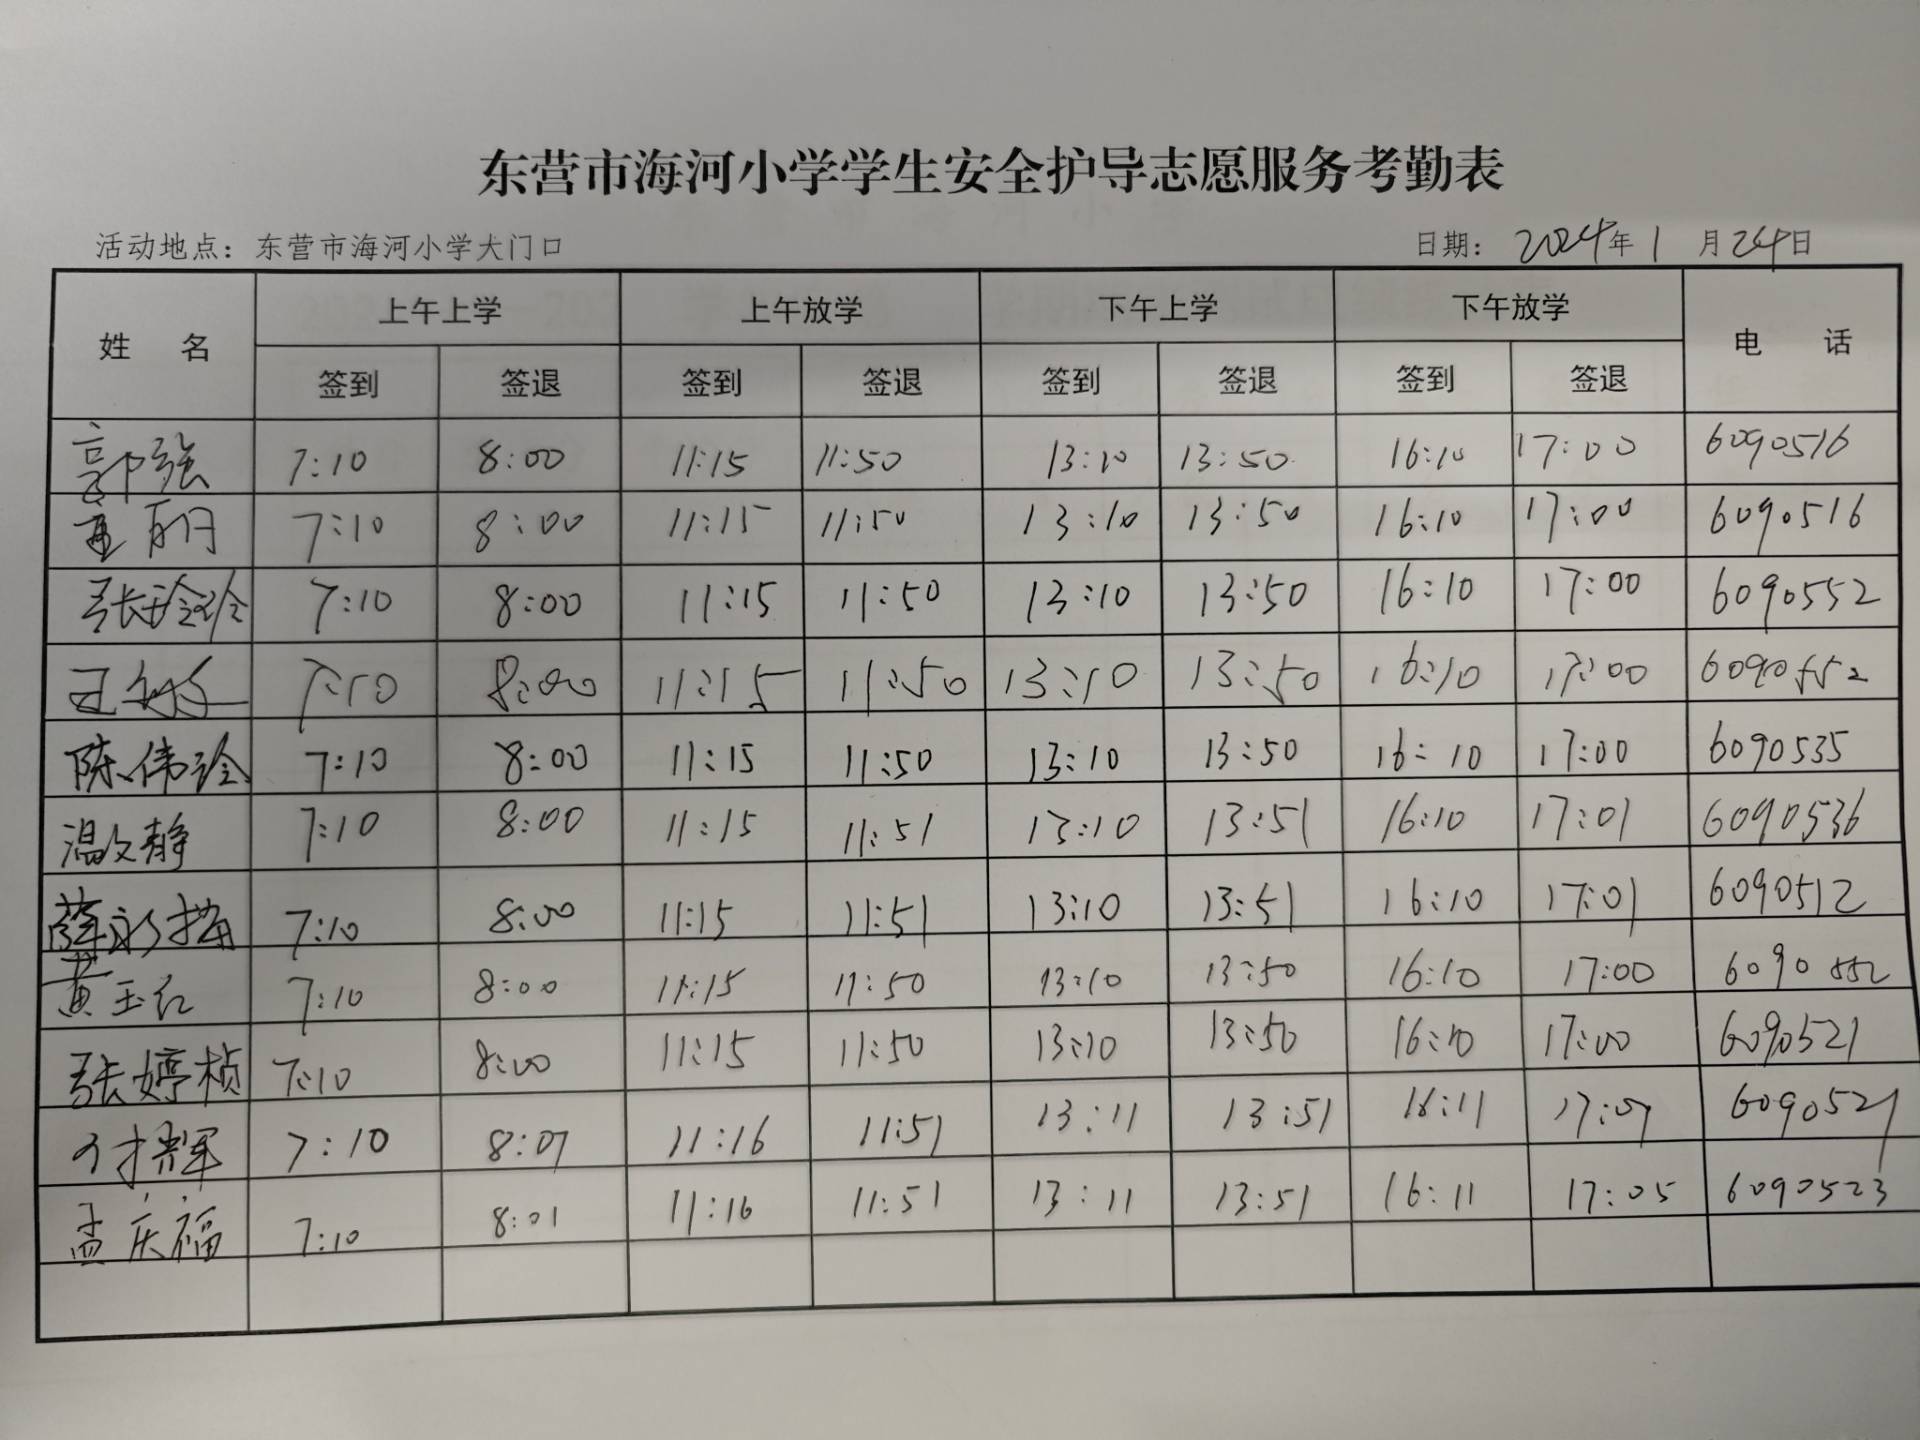 东营市海河小学学生安全护导志愿服务考勤表
活动地点：东营市海河小学大门口 日期：2024年1月24日
姓名 上午上学 上午放学 下午上学 下午放学 电话
签到 签退 签到 签退 签到 签退 签到 签退
郭强 7:10 8:00 11:15 11:50 13:10 13:50 16:10 17:00 6090516
7:10 8:00 11:15 11:50 13:10 13:50 16:10 17:00 6090516
张玲玲 7:10 8:00 11:15 11:50 13:10 13:50 16:10 17:00 6090552
王敏 7:10 8:00 11:15 11:50 13:10 13:50 16:10 17:00 6090552
陈伟玲 7:10 8:00 11:15 11:50 13:10 13:50 16:10 17:00 6090535
温文静 7:10 8:00 11:15 11:51 13:10 13:51 16:10 17:01 6090536
薛永梅 7:10 8:00 11:15 11:51 13:10 13:51 16:10 17:01 6090512
黄玉红 7:10 8:00 11:15 11:50 13:10 13:50 16:10 17:00 6090552
张婷桢 7:10 8:00 11:15 11:50 13:10 13:50 16:10 17:00 6090521
7:10 11:16 11:51 13:11 13:51 16:11 6090521
孟庆福 7:10 8:01 11:16 11:51 13:11 13:51 16:11 17:05 6090523